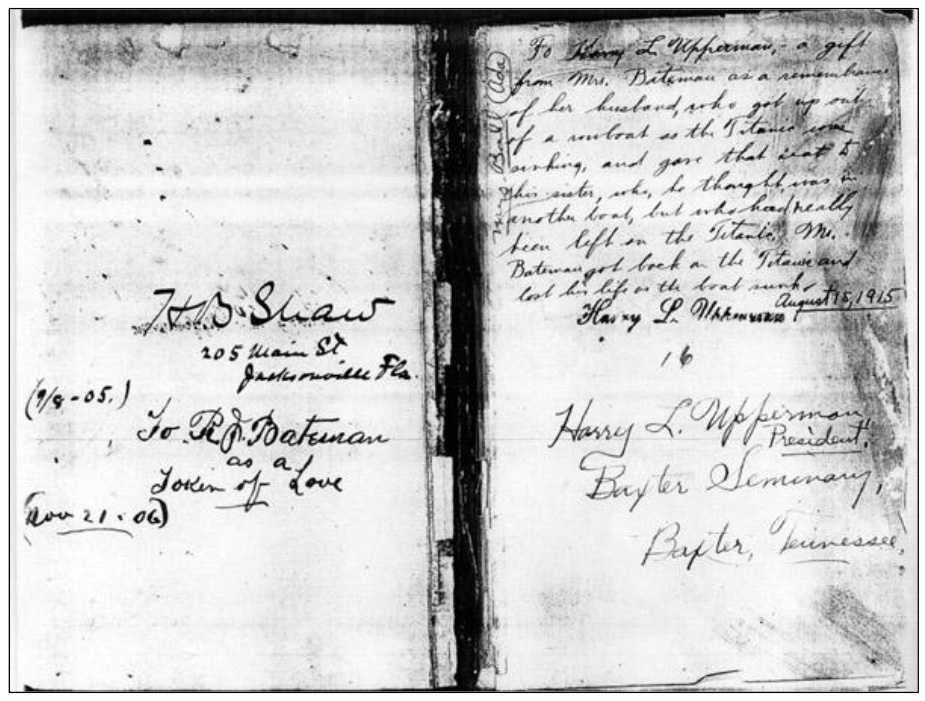 H B Shaw
205 Main St
Jacksonville Fla.
(9/8-05.)
To R. J. Bateman
as a
Token of Love
(Nov 21-06)
Mrs Ball (Ada)
To Harry L. Upperman, a gift
from Mrs. Bateman as a remembrance
of her husband, who got up out
of a rowboat as the Titanic was
sinking, and gave that seat to
his sister, who, he thought, was in
another boat, but who had really
been left on the Titanic. Mr.
Bateman got back on the Titanic and
lost his life as the boat sunk.
August 15, 1915
Harry L. Upperman
16
Harry L. Upperman,
President,
Baxter Seminary,
Baxter, Tennessee.